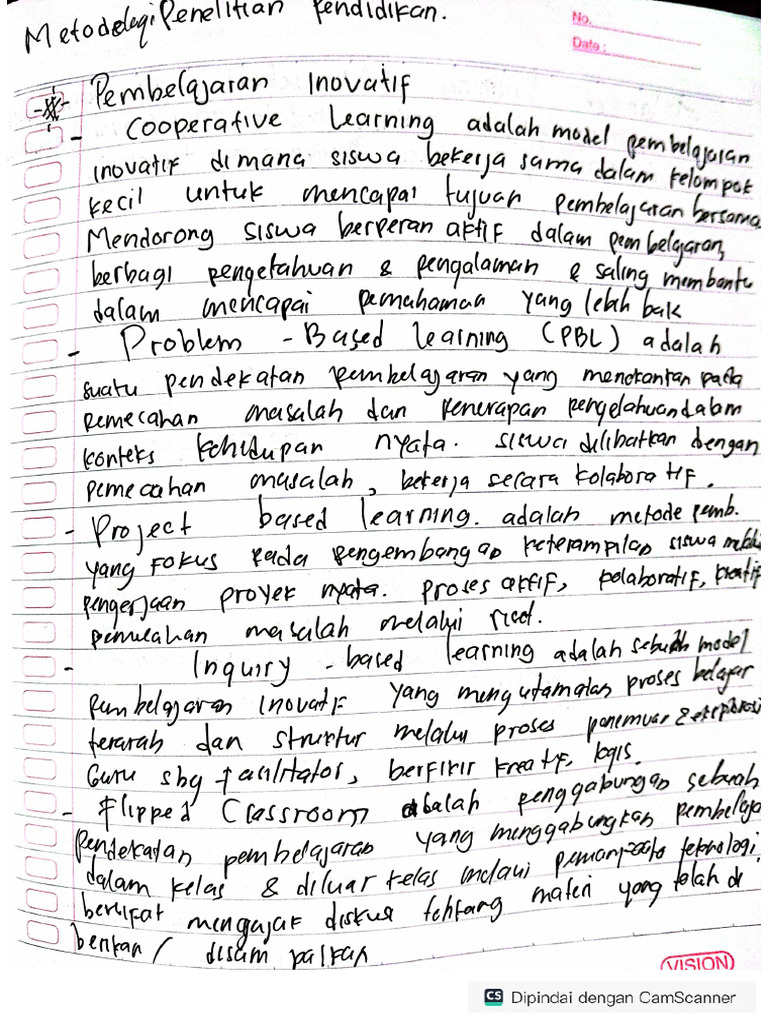 Metodologi Penelitian Pendidikan.
No.
Date:
Pembelajaran Inovatif
- Cooperative Learning adalah model pembelajaran
inovatif dimana siswa bekerja sama dalam kelompok
kecil untuk mencapai tujuan pembelajaran bersama
Mendorong siswa berperan aktif dalam pembelajaran,
berbagi pengetahuan & pengalaman & saling membantu
dalam mencapai pemahaman yang lebih baik
- Problem - Based learning (PBL) adalah
suatu pendekatan pembelajaran yang menekankan pada
pemecahan masalah dan Penerapan pengetahuan dalam
konteks kehidupan nyata. siswa dilibatkan dengan
pemecahan masalah, bekerja secara kolaboratif.
- Project based learning. adalah metode pemb.
yang Fokus pada pengembangan keterampilan siswa melalui
pengerjaan proyek nyata. proses aktif, kolaboratif, kreatif
pemecahan masalah melalui riset.
- Inquiry - based learning adalah sebuah model
pembelajaran inovatif yang mengutamakan proses belajar
terarah dan struktur melalui proses penemuan & eksplorasi
Guru sbg Facilitator, berfikir kreatif, logis.
- Flipped Classroom adalah penggabungan sebuah
Pendekatan pembelajaran yang menggabungkan pembelaja
dalam kelas & diluar kelas melaui teknologi
bersifat mengajak diskusi tentang materi yang telah di
berikan / disampaikan
VISION
CS Dipindai dengan CamScanner